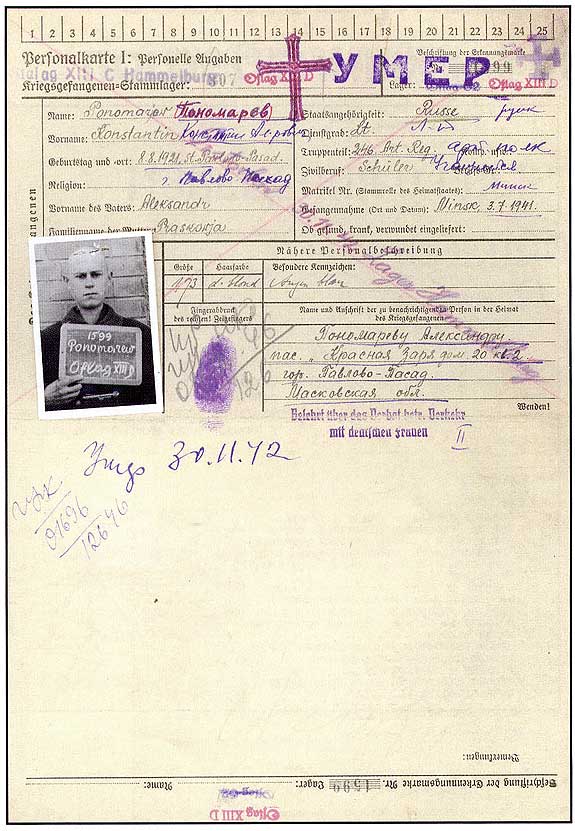 1 2 3 4 5 6 7 8 9 10 11 12 13 14 15 16 17 18 19 20 21 22 23 24 25
Personalkarte I: Personelle Angaben
Beschriftung der Erkennungsmarke
УМЕР
Stalag XIII C Hammelburg
Kriegsgefangenen-Stammlager:
Oflag XIII D
Lager:
Oflag XIII D
Name: Ponomarew Пономарев
Staatsangehörigkeit: Russe
Vorname: Konstantin
Dienstgrad: Lt.
Truppenteil: 246. Art. Reg.
Geburtstag und -ort: 8.8.1921, Pawlowo-Pasad.
г. Павлово Посад
Zivilberuf: Schüler
Religion:
Matrikel Nr. (Stammrolle des Heimatstaates) минск
Vorname des Vaters: Aleksandr
Gefangennahme (Ort und Datum): Minsk, 3.7.1941.
Familienname der Mutter: Praskowja
Ob gesund, krank, verwundet eingeliefert:
Nähere Personalbeschreibung
Größe
Haarfarbe
Besondere Kennzeichen:
173
d. blond
Augen blau
Fingerabdruck
des rechten! Zeigefingers
Name und Anschrift der zu benachrichtigenden Person in der Heimat
des Kriegsgefangenen:
1599
Ponomarew
Oflag XIII D
Пономареву Александру
пос. „Красная Заря дом. 20 кв. 2
гор. Павлово-Пасад.
Масковская обл.
Wenden!
Belehrt über das Verbot betr. Verkehr
mit deutschen Frauen
II
30.11.42
01696
12646
Bemerkungen:
Beschriftung der Erkennungsmarke Nr. 1599 Lager:
Name:
Oflag XIII D